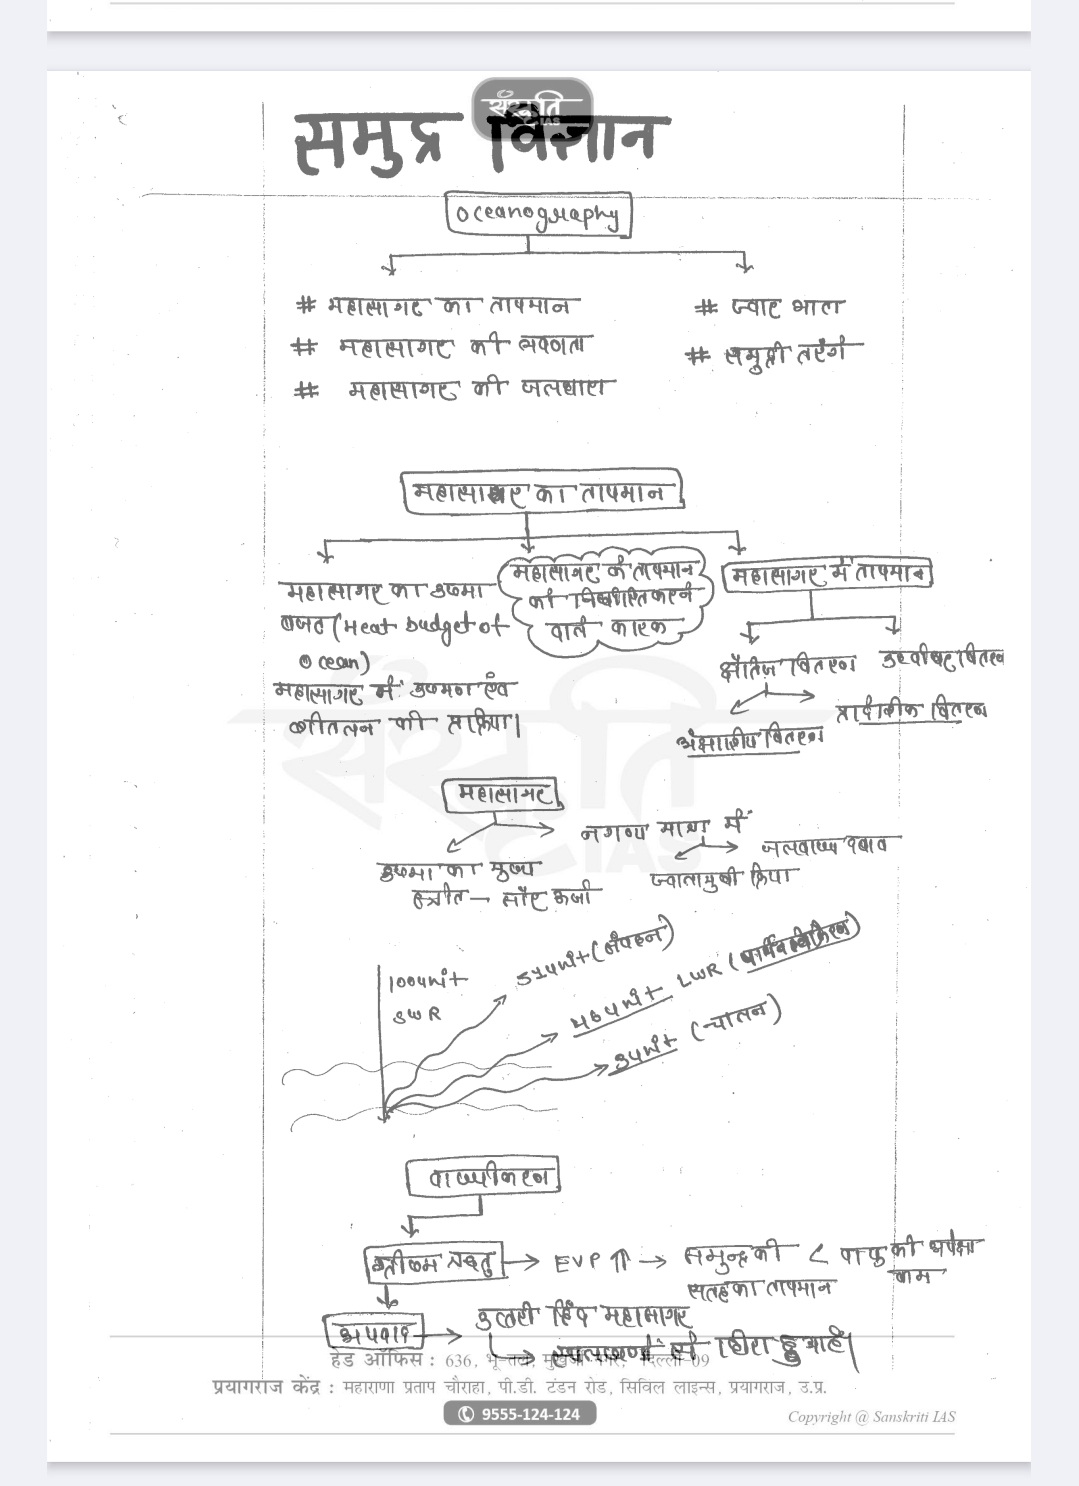 संस्कृति
IAS
समुद्र विज्ञान
Oceanography
# महासागर का तापमान
# ज्वार भाटा
# महासागर की लवणता
# समुद्री तरंगे
# महासागर की जलधारा
महासागर का तापमान
महासागर का उष्मा
बजट (Heat budget of
Ocean)
महासागर में उष्मन एंव
शीतलन की प्रक्रिया।
महासागर के तापमान
को निर्धारित करने
वाले कारक
महासागर में तापमान
क्षैतिज वितरण
उर्ध्वाधर वितरण
अंक्षाशीय वितरण
प्रादेशिक वितरण
संस्कृति
IAS
महासागर
उष्मा का मुख्य
स्त्रोत - सौर ऊर्जा
नगण्य मात्रा में
ज्वालामुखी क्रिया
जलवाष्प दबाव
100 unit
SWR
51 unit (संवहन)
46 unit LWR (पार्थिव विकिरण)
3 unit (चालन)
वाष्पीकरण
ग्रीष्म ऋतु → EVP ⇑ → समुन्द्र की < वायु की अपेक्षा
सतह का तापमान
काम
अपवाद → उत्तरी हिंद महासागर
→ स्थलखण्डो से घिरा हुआ है।
हेड ऑफिस : 636, भू-तल, मुखर्जी नगर, दिल्ली-09
प्रयागराज केंद्र : महाराणा प्रताप चौराहा, पी.डी. टंडन रोड, सिविल लाइन्स, प्रयागराज, उ.प्र.
9555-124-124
Copyright @ Sanskriti IAS